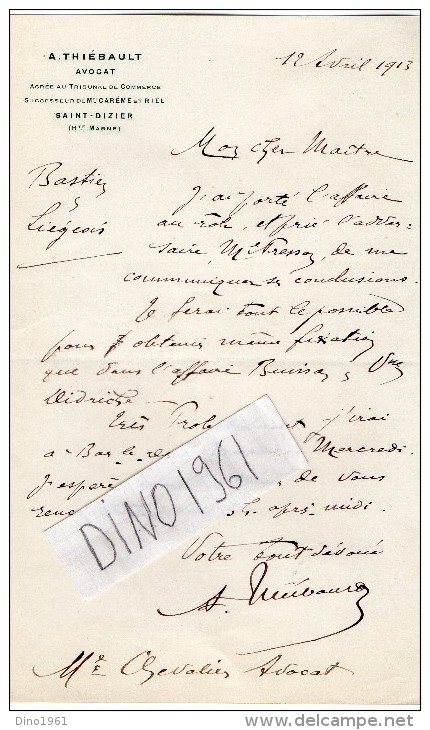 A. THIÉBAULT
AVOCAT
AGRÉÉ AU TRIBUNAL DE COMMERCE
SUCCESSEUR DE Mes CARÊME ET RIEL
SAINT-DIZIER
(Hte MARNE)
12 Avril 1913
Mon cher Maître
Bastien
Liégeois
J'ai porté l'affaire
au rôle, et prié l'adver-
saire Me de me
communiquer ses conclusions.
Je ferai tout le possible
pour obtenir même fixation
que dans l'affaire Buisson
Didrich
Très j'irai
à Bar le Mercredi.
J'espère de vous
après-midi
Votre tout dévoué
A. Thiébault
Me Chevalier Avocat
DINO1961
Dino1961
delcampe.net